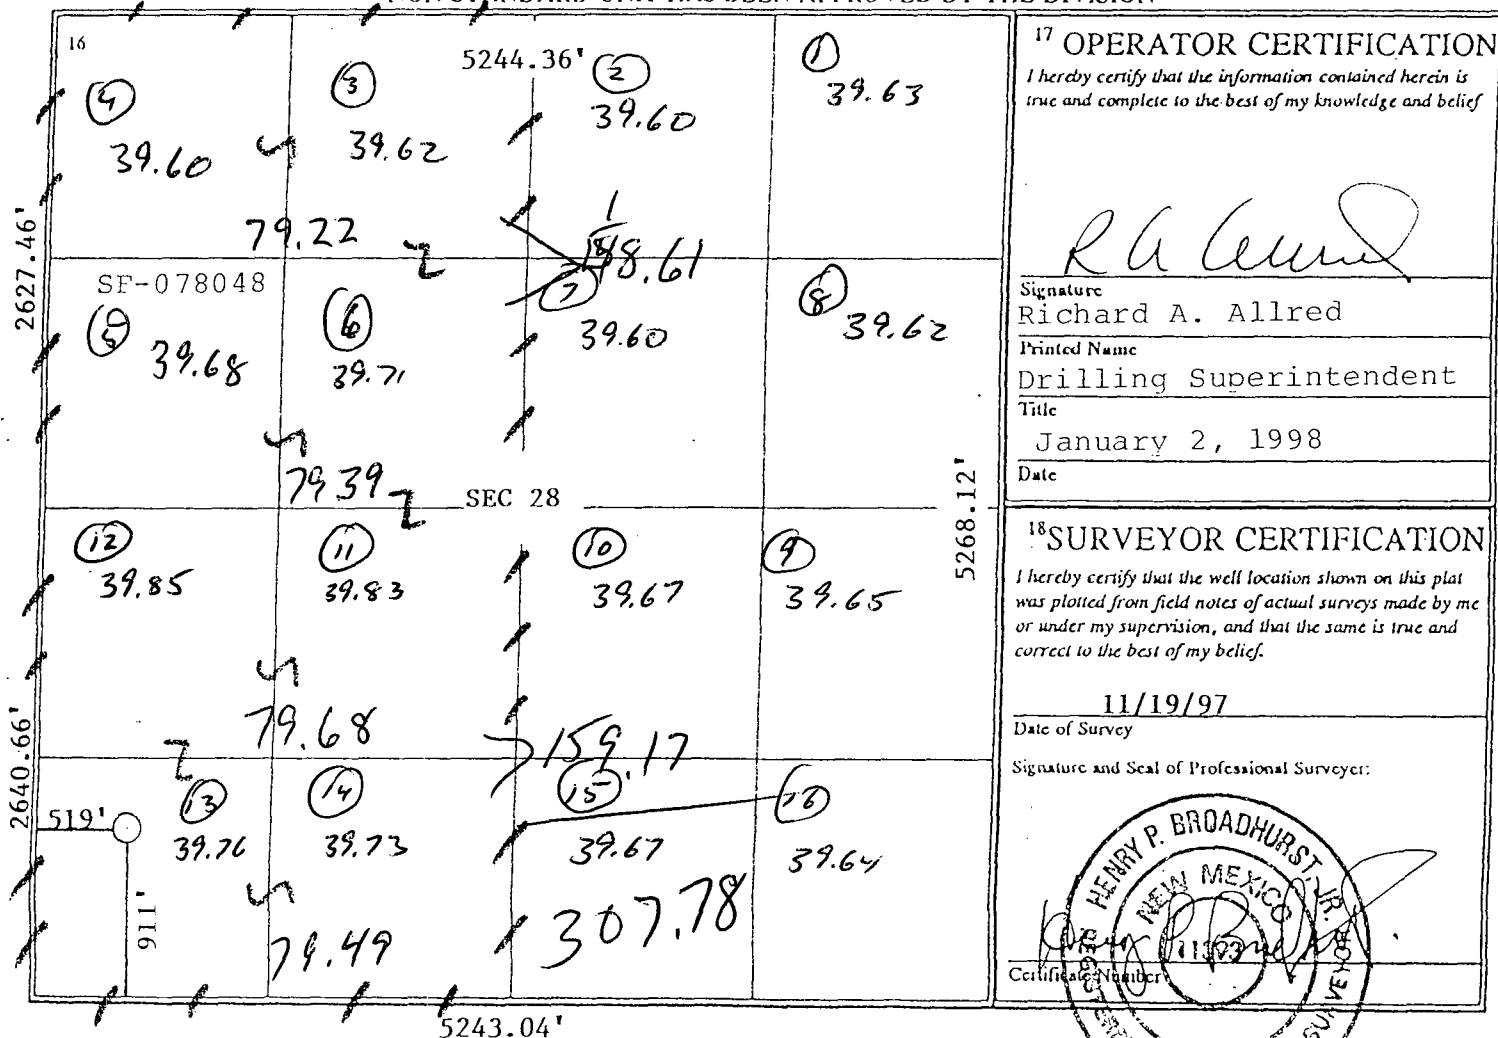 NON-STANDARD UNIT HAS BEEN APPROVED BY THE DIVISION
16
5244.36'
4
3
2
1
39.60
39.62
39.60
39.63
79.22
148.61
2627.46'
SF-078048
5
6
7
8
39.68
39.71
39.60
39.62
79.39
SEC 28
5268.12'
12
11
10
9
39.85
39.83
39.67
39.65
79.68
159.17
2640.66'
13
14
15
16
519'
39.76
39.73
39.67
39.64
911'
79.49
307.78
5243.04'
17 OPERATOR CERTIFICATION
I hereby certify that the information contained herein is
true and complete to the best of my knowledge and belief
Signature
Richard A. Allred
Printed Name
Drilling Superintendent
Title
January 2, 1998
Date
18 SURVEYOR CERTIFICATION
I hereby certify that the well location shown on this plat
was plotted from field notes of actual surveys made by me
or under my supervision, and that the same is true and
correct to the best of my belief.
11/19/97
Date of Survey
Signature and Seal of Professional Surveyer:
HENRY P. BROADHURST, JR.
NEW MEXICO
11393
SURVEYOR
Certificate Number